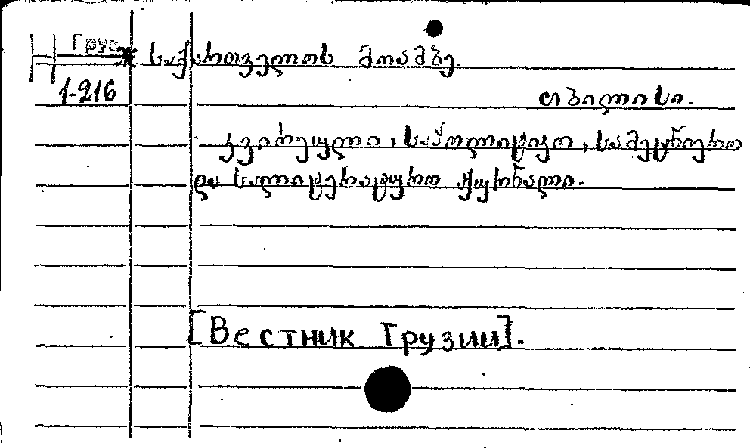 Груз
საქართველოს მოამბე.
1-216
თბილისი.
კვირეული, საპოლიტიკო, სამეცნიერო
და სალიტერატურო ჟურნალი.
[Вестник Грузии].